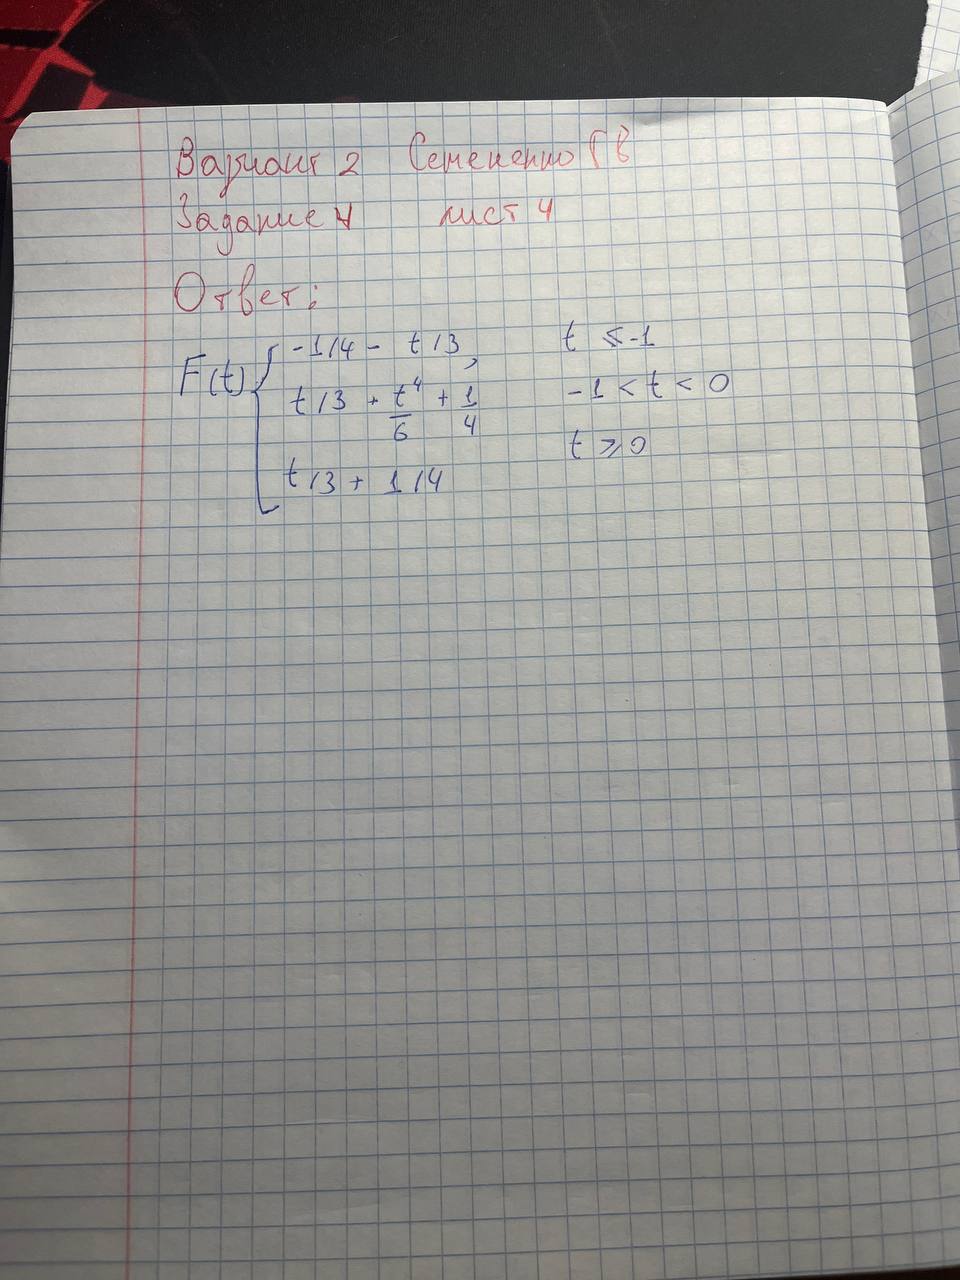 Вариант 2 Семененко Г В
Задание 4 лист 4
Ответ:
F(t) { -1/4 - t/3, t ≤ -1
t/3 + t⁴/6 + 1/4 -1 < t < 0
t/3 + 1/4 t ≥ 0